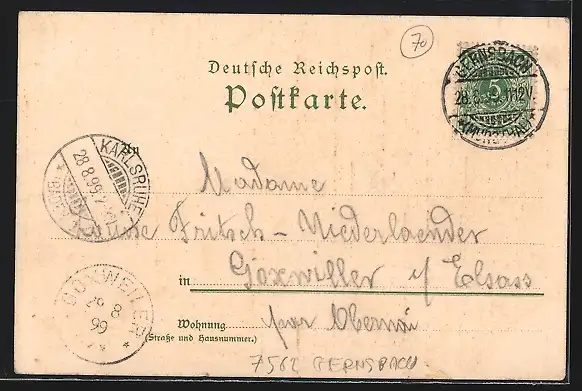 70
Deutsche Reichspost.
Postkarte.
GERNSBACH
28.8.99.11-12V.
(MURGTHAL)
5
An
KARLSRUHE
28.8.99.
Madame
Louise Fritsch-Niederlaender
in Goxwiller i/ Elsass
GOXWEILER
29 8
99
Wohnung per Obernai
(Straße und Hausnummer.)
7562 GERNSBACH